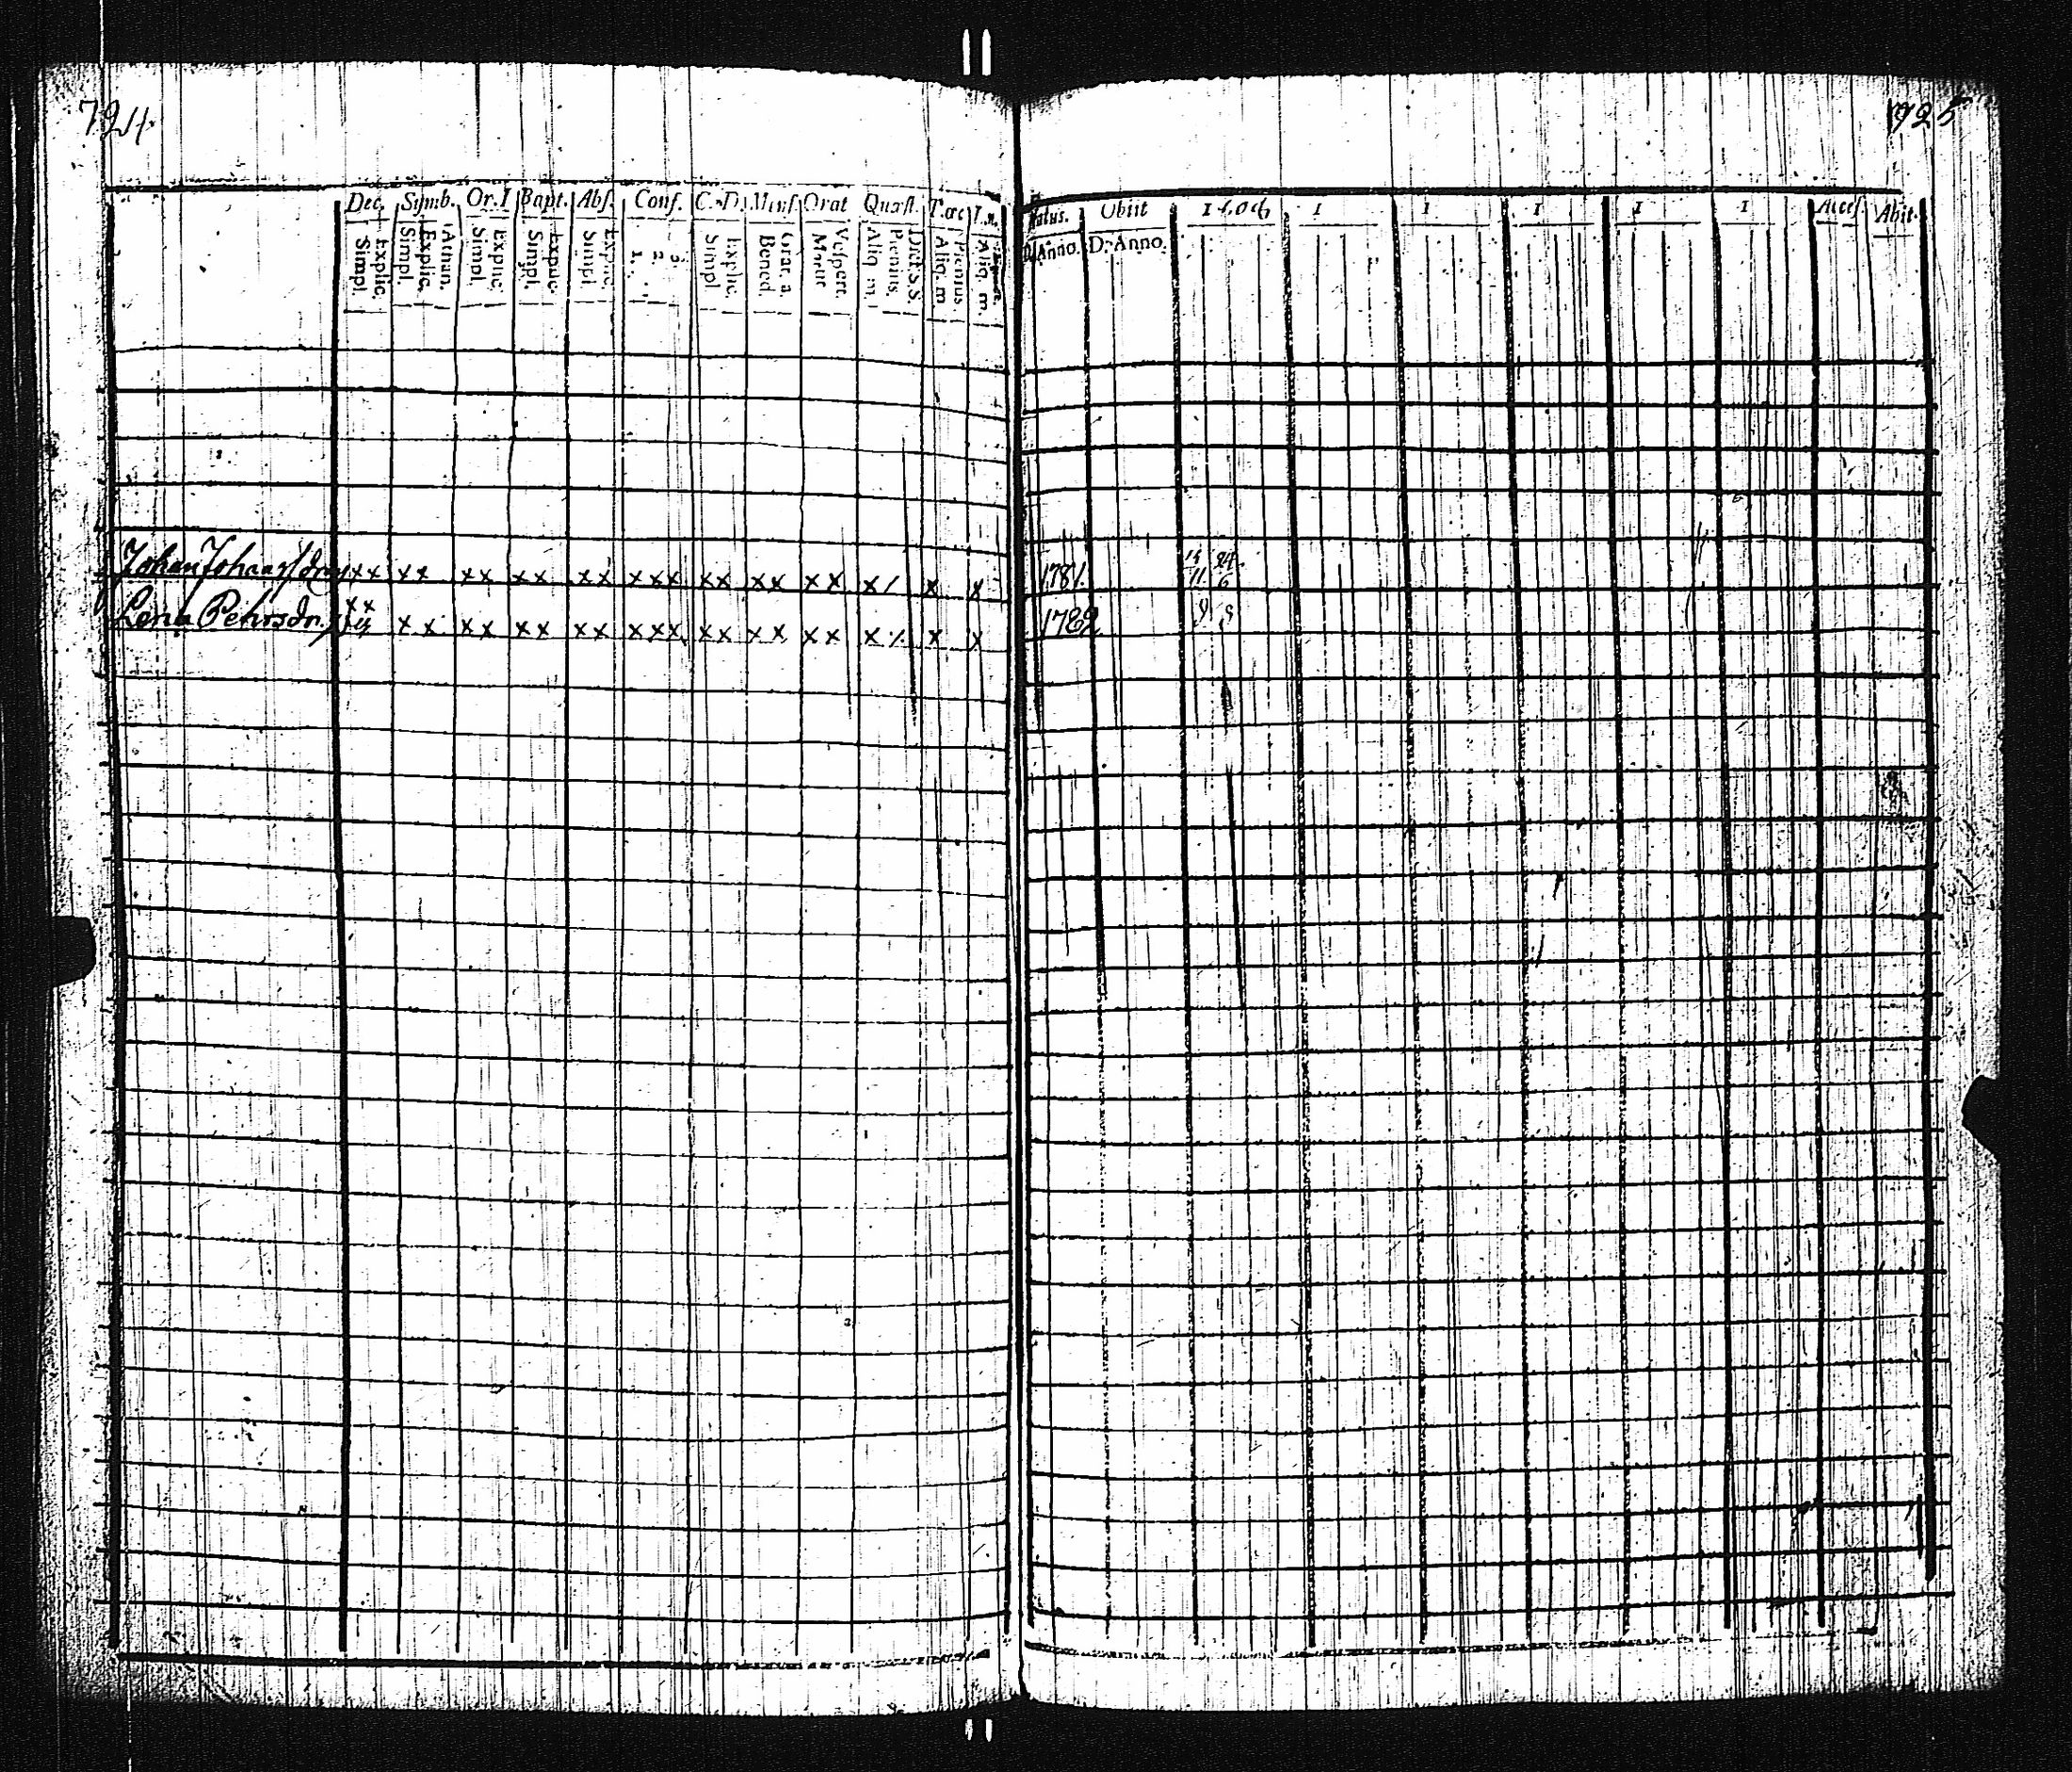 724.
725
Dec. Symb. Or. I Bapt. Abs. Conf. C. D. Mens. Orat Quæst. T. œc
Explic. Simpl.
Athan. Explic. Simpl.
Explic. Simpl.
Explic. Simpl.
Explic. Simpl.
3. 2. 1.
Explic. Simpl.
Grat. a. Bened.
Vespert. Matut
Dict. S.S. Plenius. Aliq. m.
Plenius Aliq. m.
Aliq. m.
Natus. Obiit 1 1 1 1 1 1 Access. Abit.
D. Anno. D. Anno.
Johan xx xx xx xx xx xxx xx xx xx x / x x 1781.
Lena Pehrsdr. xx xx xx xx xx xxx xx xx xx x x x 1782